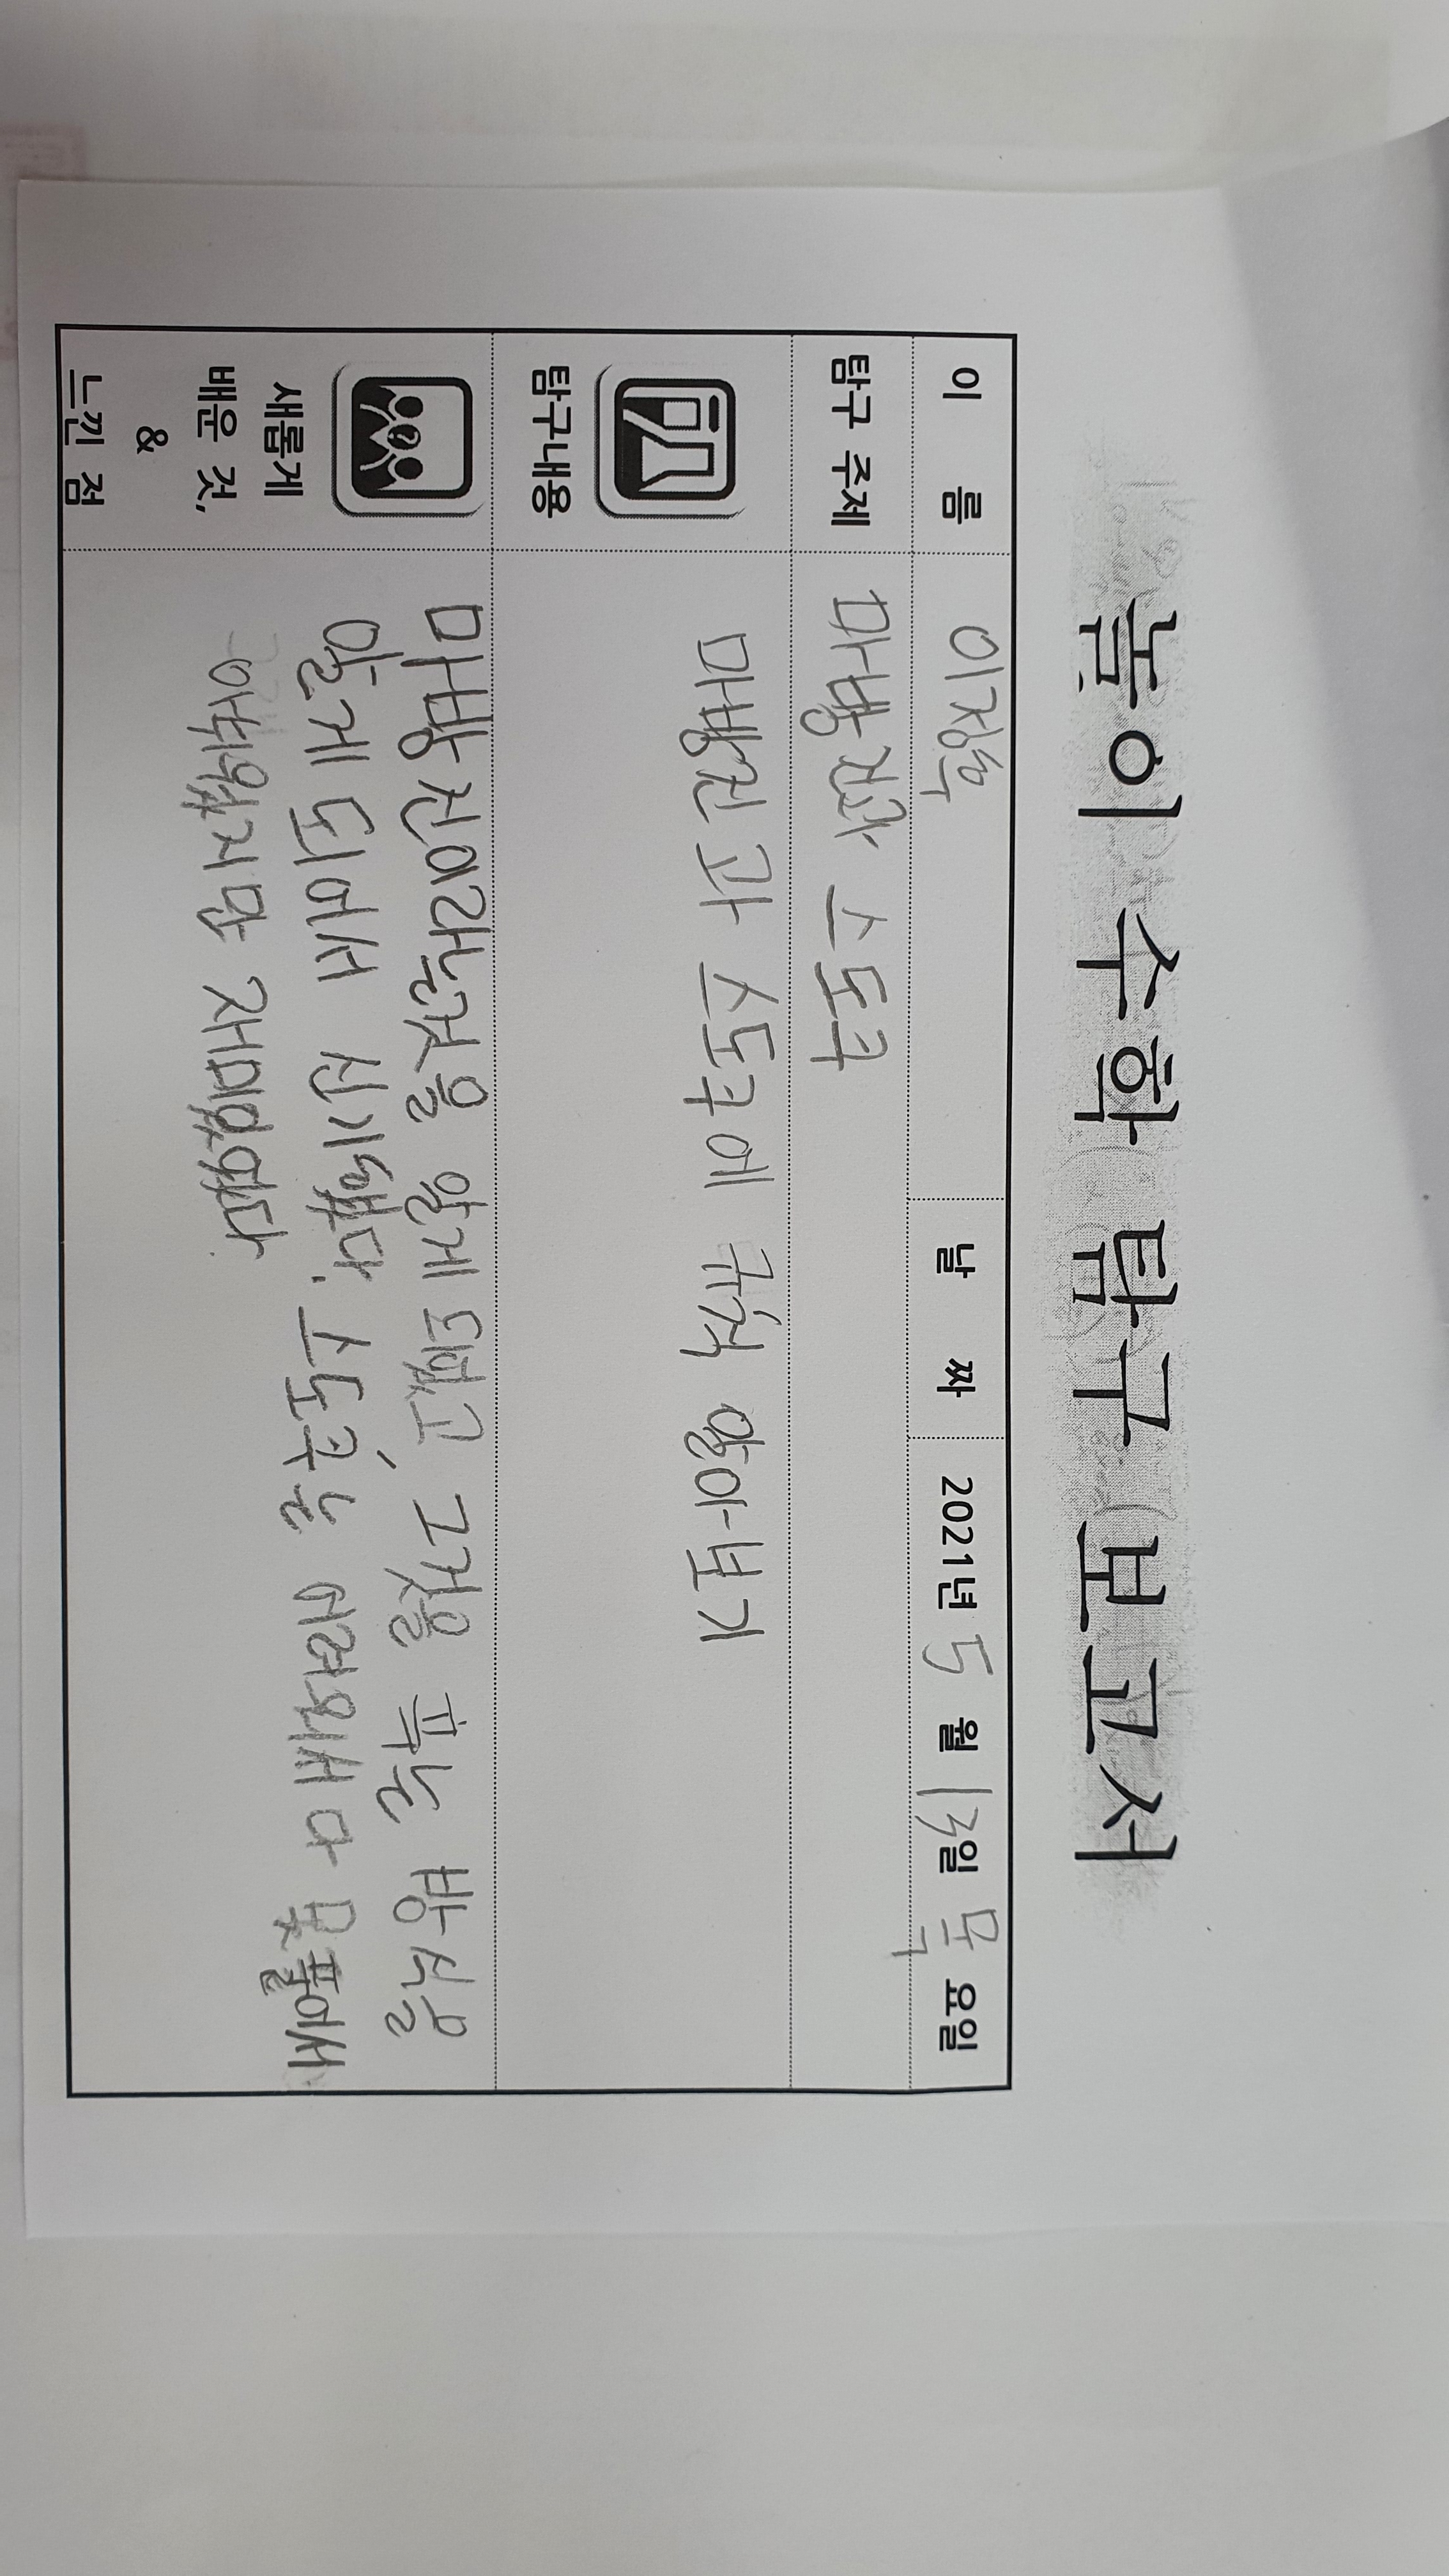 놀이 수학 탐구 보고서
이 름 이정우 날 짜 2021년 5월 13일 목요일
탐구 주제 마방진과 스도쿠
탐구내용 마방진과 스도쿠에 규칙 알아보기
새롭게
배운 것,
&
느낀 점
마방진이라는것을 알게 됐고, 그것을 푸는 방식을
알게 되어서 신기했다. 스도쿠는 어려워서 다 못 풀어서
아쉬웠지만 재미있었다.